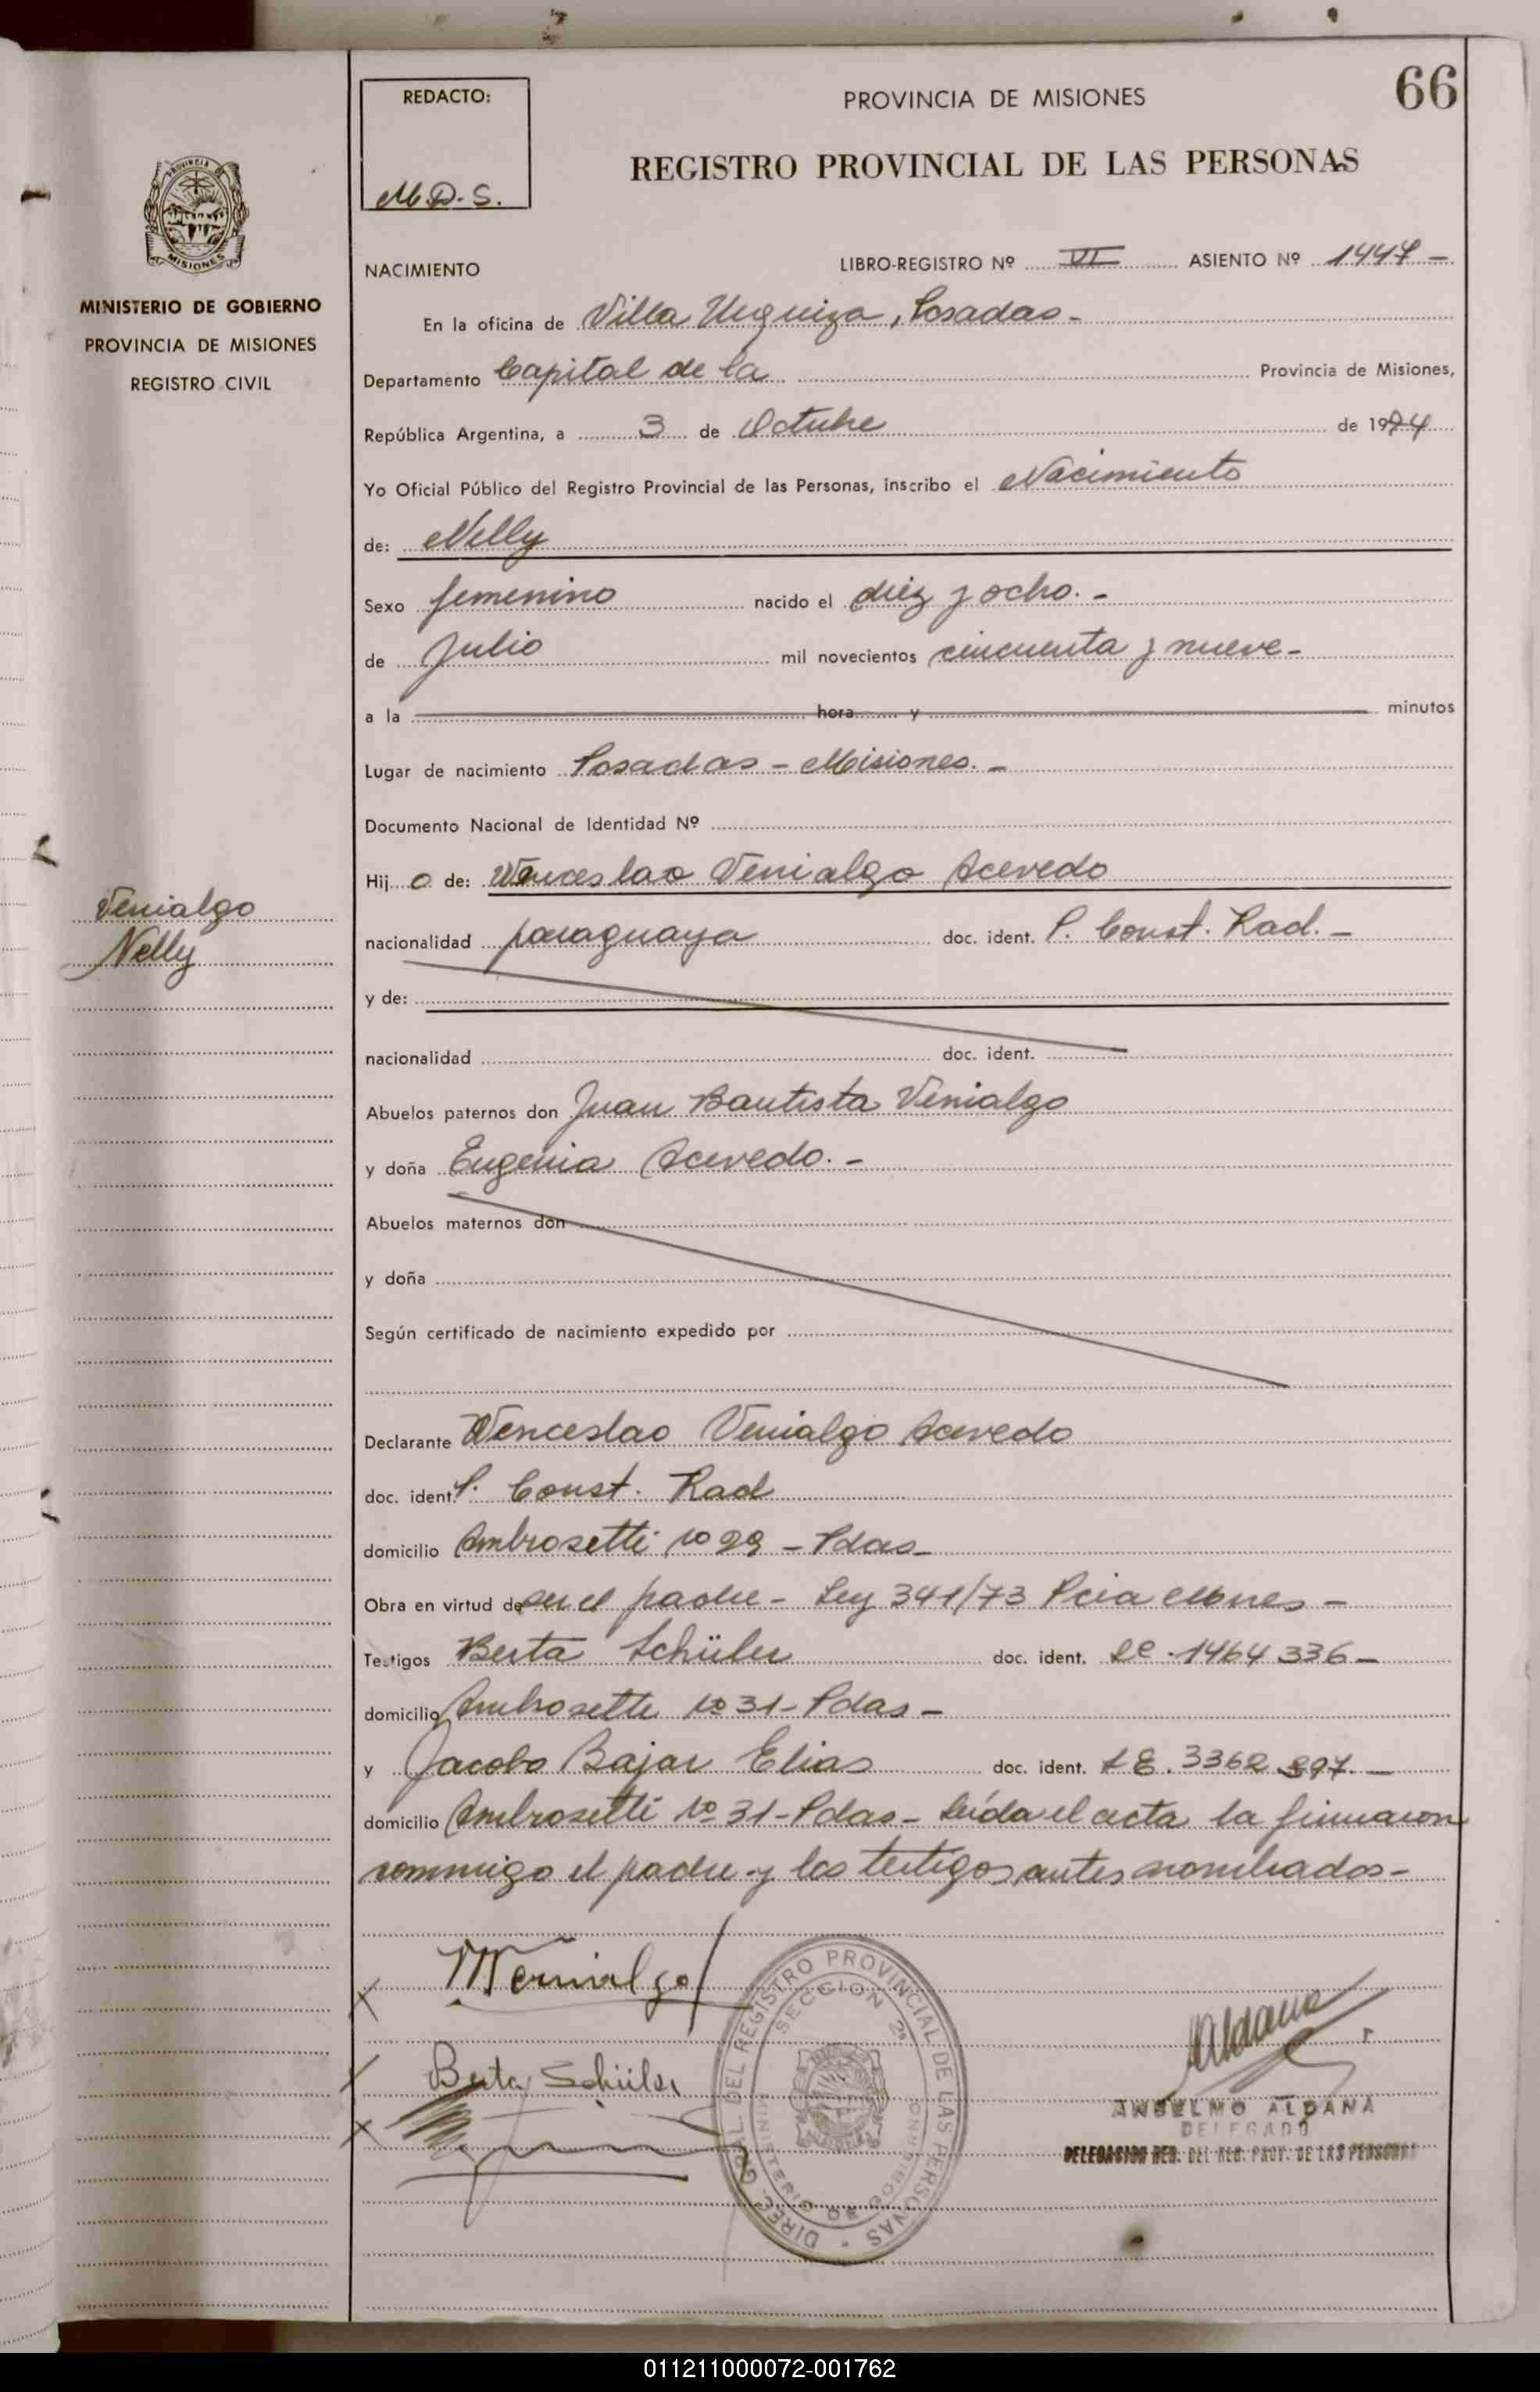 66
REDACTO:
M.D.S.
PROVINCIA DE MISIONES
REGISTRO PROVINCIAL DE LAS PERSONAS
PROVINCIA
MISIONES
MINISTERIO DE GOBIERNO
PROVINCIA DE MISIONES
REGISTRO CIVIL
NACIMIENTO LIBRO-REGISTRO Nº VI ASIENTO Nº 1447 -
En la oficina de Villa Urquiza, Posadas -
Departamento Capital de la Provincia de Misiones,
República Argentina, a 3 de Octubre de 1974
Yo Oficial Público del Registro Provincial de las Personas, inscribo el Nacimiento
de: Nelly
Sexo femenino nacido el diez y ocho. -
de Julio mil novecientos cincuenta y nueve -
a la hora y minutos
Lugar de nacimiento Posadas - Misiones. -
Documento Nacional de Identidad Nº
Hij o de: Wenceslao Venialgo Acevedo
Venialgo
Nelly
nacionalidad paraguaya doc. ident. P. Const. Rad. -
y de:
nacionalidad doc. ident.
Abuelos paternos don Juan Bautista Venialgo
y doña Eugenia Acevedo. -
Abuelos maternos don
y doña
Según certificado de nacimiento expedido por
Declarante Wenceslao Venialgo Acevedo
doc. ident. P. Const. Rad
domicilio Ambrosetti Nº 29 - Pdas -
Obra en virtud de ser el padre - Ley 341/73 Pcia Mnes -
Testigos Berta Schüler doc. ident. LC. 1464336 -
domicilio Ambrosetti Nº 31 - Pdas -
y Jacobo Bajar Elias doc. ident. LE. 3362 897. -
domicilio Ambrosetti Nº 31 - Pdas - Leída el acta la firmaron
conmigo el padre y los testigos antes nombrados -
WVenialgo
Berta Schüler
DIREC. GRAL. DEL REGISTRO PROVINCIAL DE LAS PERSONAS
SECCION 2ª
MINISTERIO DE GOBIERNO
Aldana
ANSELMO ALDANA
DELEGADO
DELEGACION REG. DEL REG. PROV. DE LAS PERSONAS
011211000072-001762